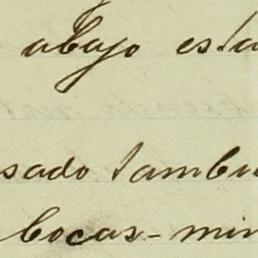 abajo esta
sado tambi
bocas-min